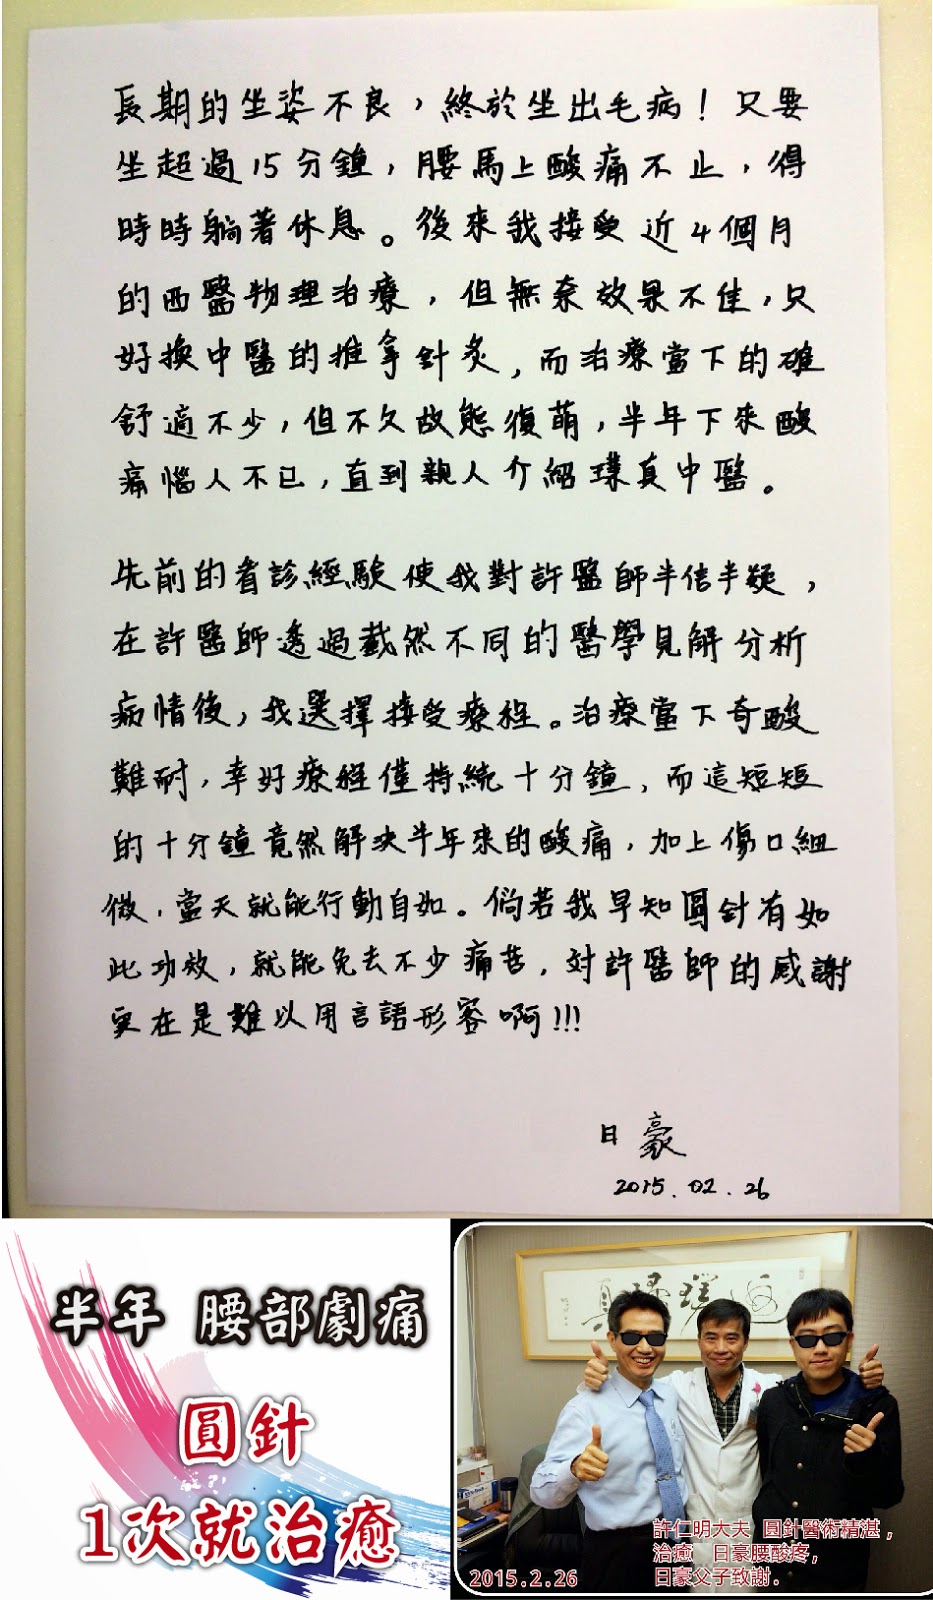 長期的坐姿不良，終於坐出毛病！只要
坐超過15分鐘，腰馬上酸痛不止，得
時時躺著休息。後來我接受近4個月
的西醫物理治療，但無奈效果不佳，只
好換中醫的推拿針灸，而治療當下的確
舒適不少，但不久故態復萌，半年下來酸
痛惱人不已，直到親人介紹璞真中醫。
先前的看診經驗使我對許醫師半信半疑，
在許醫師透過截然不同的醫學見解分析
病情後，我選擇接受療程。治療當下奇酸
難耐，幸好療程僅持續十分鐘，而這短短
的十分鐘竟然解決半年來的酸痛，加上傷口細
微，當天就能行動自如。倘若我早知圓針有如
此功效，就能免去不少痛苦，对許醫師的感謝
実在是難以用言語形容啊!!!
日豪
2015.02.26
半年 腰部劇痛
圓針
1次就治癒
許仁明大夫 圓針醫術精湛，
治癒 日豪腰酸疼，
2015.2.26 日豪父子致謝.